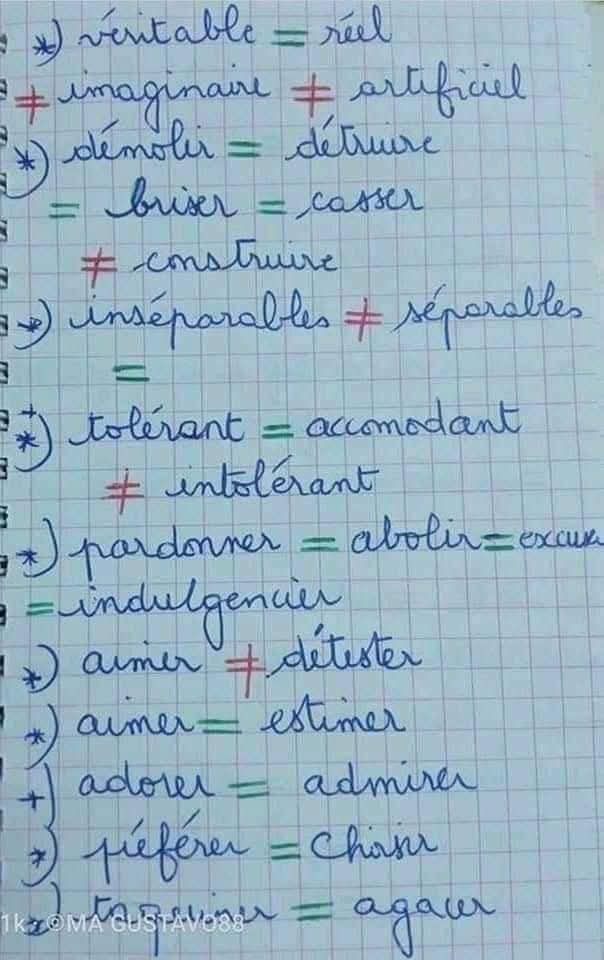 *) véritable = réel
≠ imaginaire ≠ artificiel
*) démolir = détruire
= briser = casser
≠ construire
*) inséparables ≠ séparables
=
*) tolérant = accomodant
≠ intolérant
*) pardonner = abolir = excuser
= indulgencier
*) aimer ≠ détester
*) aimer = estimer
+) adorer = admirer
*) préférer = choisir
*) taquiner = agacer
©MA GUSTAVO88